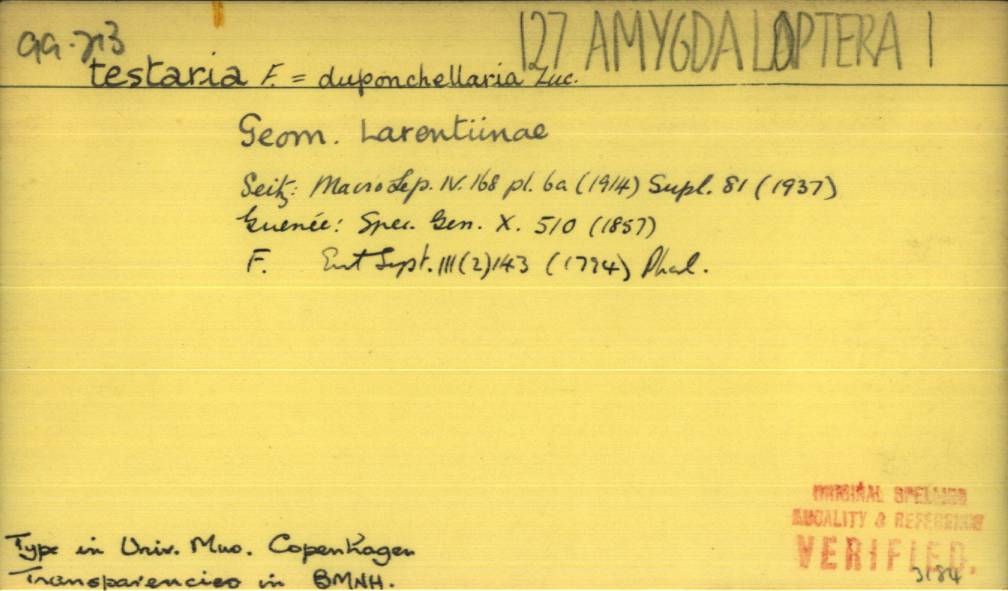 127 AMYGDALOPTERA 1
testaria F. = duponchellaria Luc.
Geom. Larentiinae
Seitz: MacroLep. IV. 168 pl. 6a (1914) Supl. 81 (1937)
Guenée: Spec. Gen. X. 510 (1857)
F. Ent Syst. III(2) 143 (1794) Phal.
ORIGINAL SPELLING
LOCALITY & REFERENCE
VERIFIED.
3184
Type in Univ. Mus. Copenhagen
Transparencies in BMNH.